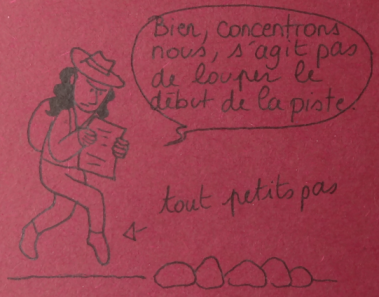 Bien, concentrons
nous, s'agit pas
de louper le
début de la piste.
tout petits pas